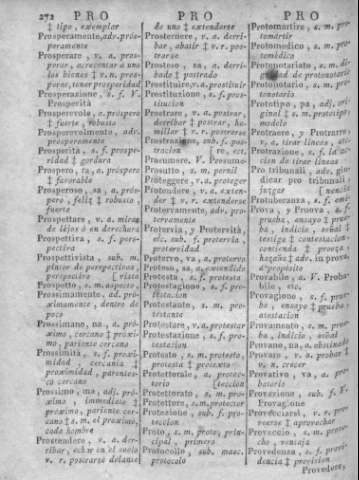 272 PRO PRO PRO
‡ tipo, exemplar
Prosperamente, adv. prós-
peramente
Prosperare, v. a. pros-
perar, acrecentar a uno
los bienes ‡ v. n. pros-
perar, tener prosperidad
Prosperazione, s. f. V.
Prosperità
Prosperevole, a. próspero
‡ fuerte, robusto
Prosperevolmente, adv.
prosperamente
Prosperità, s. f. prospe-
ridad ‡ gordura
Prospero, ra, a. próspero
‡ favorable
Prosperoso, sa, a. prós-
pero, feliz ‡ robusto,
fuerte
Prospettare, v. a. mirar
de léjos ó en derechura
Prospettiva, s. f. pers-
pectiva
Prospettivista, sub. m.
pintor de perspectivas,
perspectivo [vista
Prospetto, s. m. aspecto,
Prossimamente, ad. pró-
ximamente, dentro de
poco
Prossimano, na, a. pró-
ximo, cercano ‡ próxi-
mo, pariente cercano
Prossimità, s. f. proxi-
midad, cercania ‡
proximidad, parentes-
co cercano
Prossimo, ma, adj. pró-
ximo, inmediato ‡
proximo, pariente cer-
cano ‡ s. m. el proximo,
cada hombre
Prostendere, v. a. der-
ribar, echar en el suelo
v. r. postrarse delante
de uno ‡ extenderse
Prosternere, v. a. derri-
bar, abatir ‡ v. r. pos-
trarse
Prosteso, sa, a. derri-
bado ‡ postrado
Prostituire, v. a. prostituir
Prostituzione, s. f. pros-
titucion
Prostrare, v. a. postrar,
derribar ‡ postrar, hu-
millar ‡ v. r. postrarse
Prostrazione, sub. f. pos-
tracion
Prosumere, V. Presumere
Prosutto, s. m. pernil
Proteggere, v. a. proteger
Protendere, v. a. exten-
der ‡ v. r. extenderse
Protervamente, adv. pro-
tervamente
Protervia, y Protervità,
etc. sub. f. protervia,
protervidad
Protervo, va, a. protervo
Proteso, sa, a. extendido
Protesta, s. f. protesta
Protestagione, s. f. pro-
testacion
Protestante, s. m. pro-
testante
Protestare, v. a. protestar
Protestazione, s. f. pro-
testacion
Protesto, s. m. protesto,
protesta ‡ pretexto
Protettorale, a. protec-
torio
Protezione, s. f. proteccion
Protettore, s. m. protector
Proto, s. m. proto, prin-
cipal, primero
Protocollo, sub. masc.
protocolo
Protomartire, s. m. pro-
tomártir
Protomedico, s. m. pro-
tomédico
Protonotariato, s. m. dig-
nidad de protonotario
Protonotario, s. m. pro-
tonotario
Prototipo, pa, adj. ori-
ginal ‡ s. m. prototipo,
modelo
Protraere, y Protrarre,
v. a. tirar líneas, etc.
Protrazione, s. f. la ac-
cion de tirar líneas
Pro tribunali, adv. juri-
dicar pro tribunali,
juzgar
Protuberanza, s. f.
Prova, y Pruova, s. f.
prueba, ensayo ‡ prue-
ba, indicio, señal ‡
testigo ‡ contestacion,
contienda ‡ proeza,
hazaña ‡ adv. in prova,
de propósito
Provabile, a. V. Proba-
bile, etc.
Provagione, s. f. prue-
ba, ensayo ‡ prueba,
atestacion
Provamento, s. m. prue-
ba, indicio, señal
Provano, na, a. obstinado
Provare, v. a. probar ‡
v. n. crecer
Provativo, va, a. pro-
batorio
Provazione, sub. f. V.
Provagione
Provecciarsi, v. r. prove-
erse ‡ aprovechar
Proveccio, s. m. prove-
cho, ventaja
Provedenza, s. f. provi-
dencia ‡ provision
Provedere,